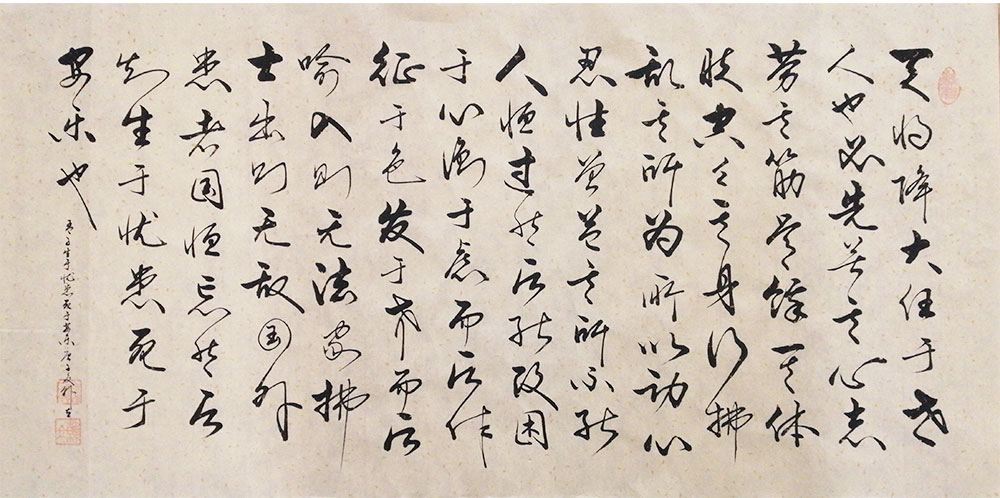 天将降大任于是
人也必先苦其心志
劳其筋骨饿其体
肤空乏其身行拂
乱其所为所以动心
忍性曾益其所不能
人恒过然后能改困
于心衡于虑而后作
征于色发于声而后
喻入则无法家拂
士出则无敌国外
患者国恒亡然后
知生于忧患死于
安乐也
孟子生于忧患死于安乐